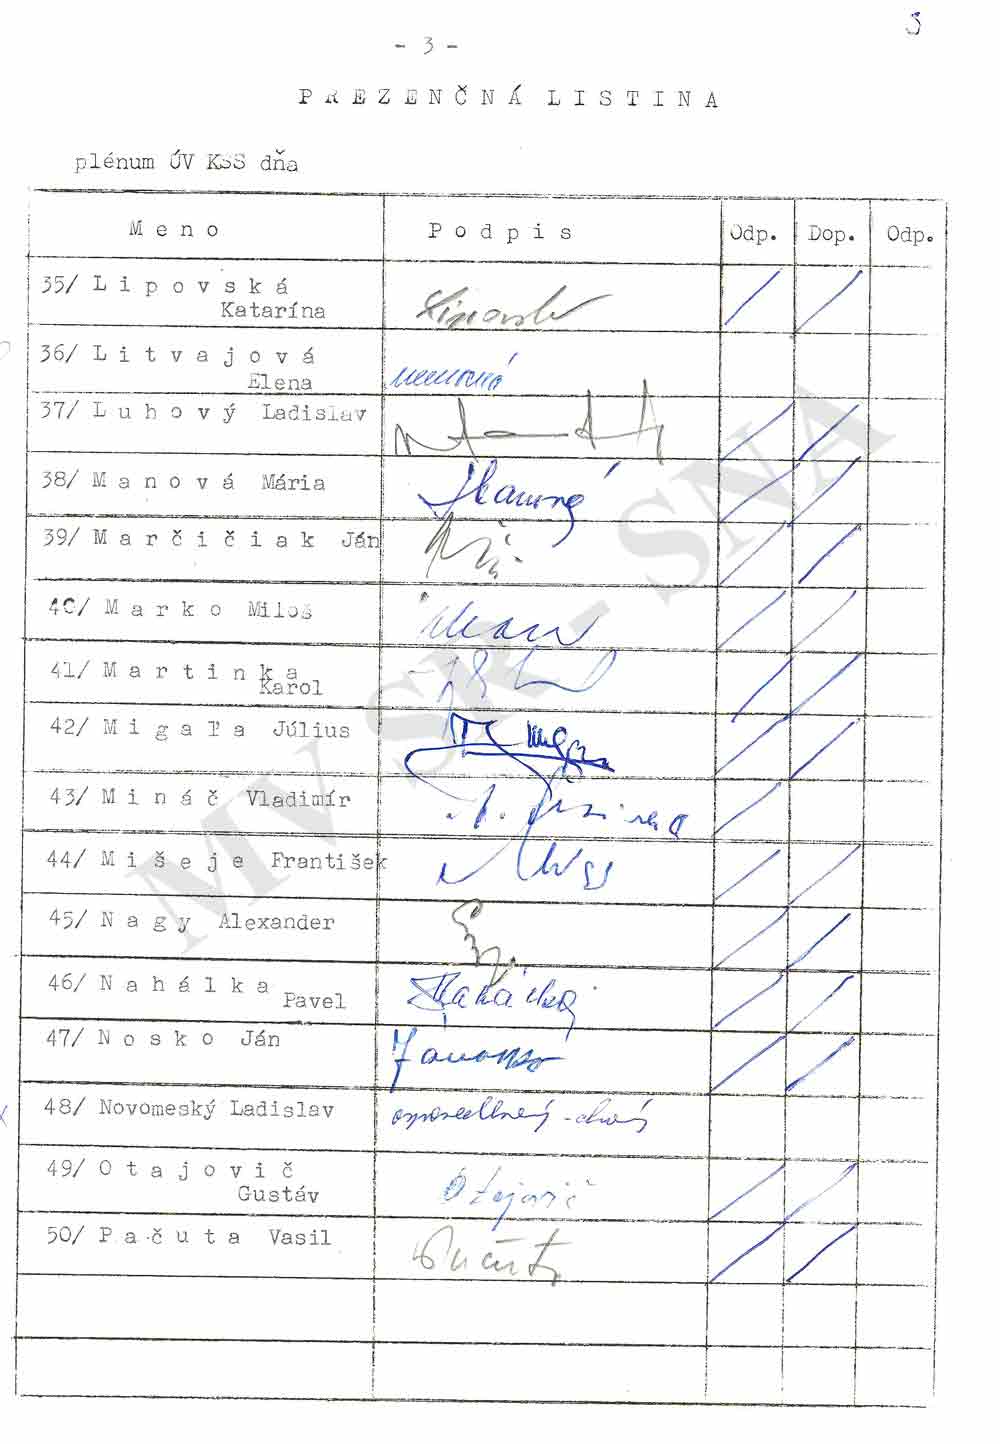 3
- 3 -
PREZENČNÁ LISTINA
plénum ÚV KSS dňa
Meno Podpis Odp. Dop. Odp.
35/ Lipovská
Katarína
36/ Litvajová
Elena nemocná
37/ Luhový Ladislav
38/ Manová Mária Manová
39/ Marčičiak Ján
40/ Marko Miloš
41/ Martinka
Karol
42/ Migaľa Július
43/ Mináč Vladimír
44/ Mišeje František
45/ Nagy Alexander
46/ Nahálka
Pavel
47/ Nosko Ján
48/ Novomeský Ladislav ospravedlnený - chorý
49/ Otajovič
Gustáv Otajovič
50/ Pačuta Vasil Pačuta
MV SR - SNA